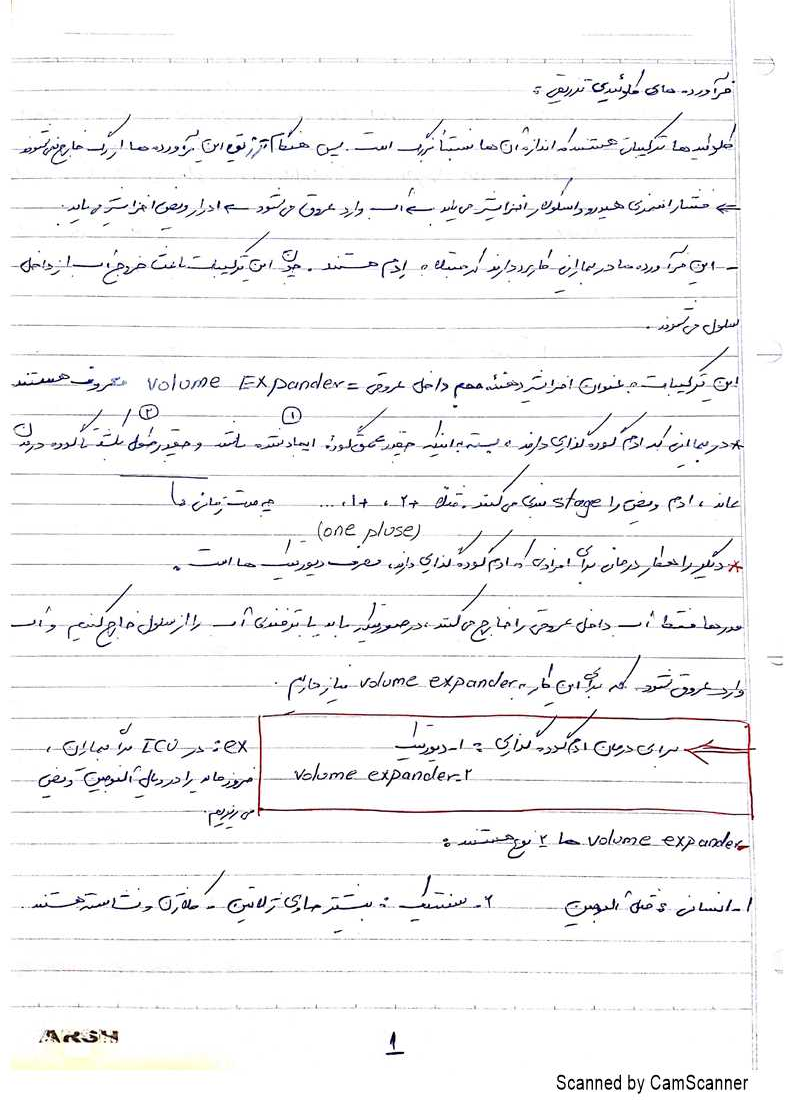 فرآورده های کلوئیدی تزریقی :
کلوئیدها ترکیباتی هستند که اندازه آن ها نسبتاً بزرگ است. پس هنگام تزریق این فرآورده ها از رگ خارج نمی شوند
⇐ فشار اسمزی هیدرواسکولار افزایش می یابد ← آب وارد عروق می شود ← ادرار مریض افزایش می یابد.
- این فرآورده ها در بیمارانی کاربرد دارند که مبتلا به ادم هستند. چون این ترکیبات باعث خروج آب از داخل
سلول می شوند.
این ترکیبات به عنوان افزایش دهنده حجم داخل عروقی = volume Expander معروف هستند
* در بیمارانی که ادم گوده گذاری دارند، بسته به اینکه چقدر عمق گوده ① ایجاد شده باشد و چقدر طول ② بکشد تا گوده در بدن
بماند، ادم مریض را stage بندی می کنند. مثلاً +2، +1، ... چه مدت زمانی
(one pluse)
* دیگر راهکار درمان برای افرادی که ادم گوده گذاری دارند، مصرف دیورتیک ها است.
مدرها فقط آب داخل عروق را خارج می کنند، در صورتیکه باید با ترفندی آب را از سلول خارج کنیم و آب
وارد عروق شود که برای این کار به volume expander نیاز داریم.
برای درمان ادم گوده گذاری : 1- دیورتیک
2- volume expander
ex: در ICU برای بیماران،
فروزماید را در ویال آلبومین مریض
می ریزیم.
- volume expander ها 2 نوع هستند :
1- انسانی : مثل آلبومین 2- سنتتیک : بیشتر حاوی ژلاتین - کلاژن و نشاسته هستند.
ARSH
1
Scanned by CamScanner